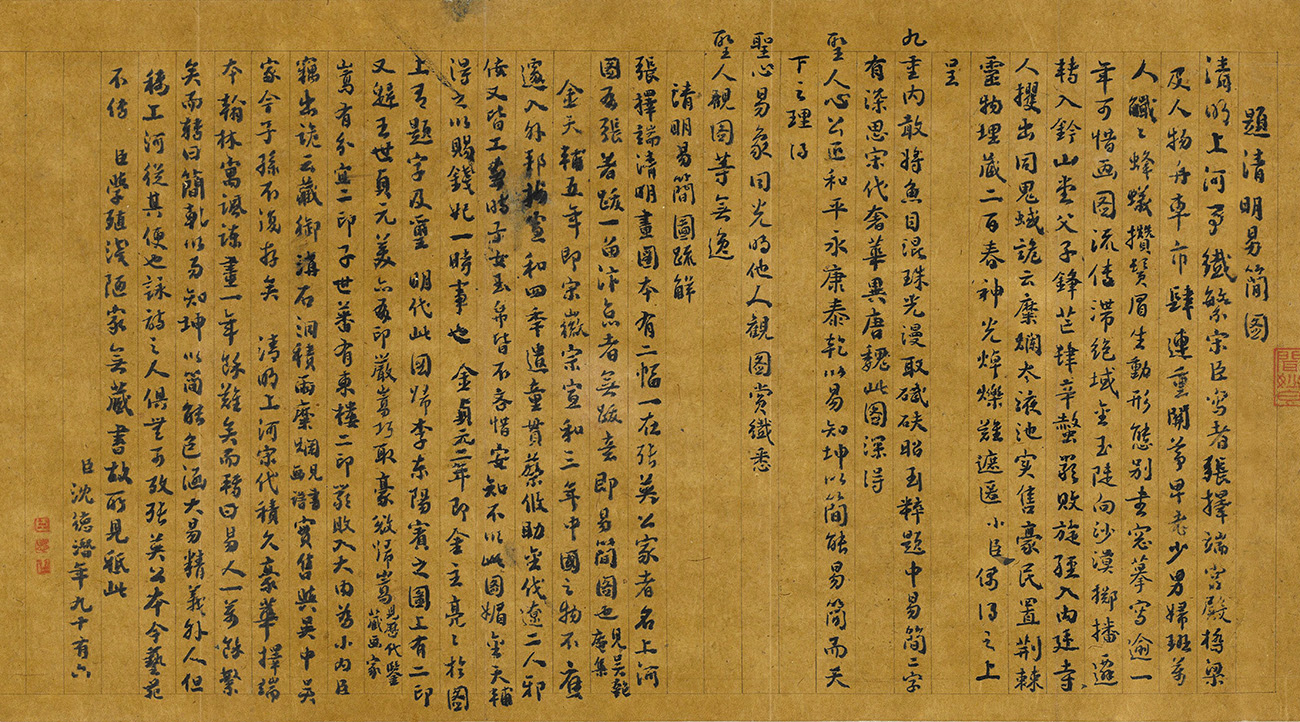 題清明易簡圖
清明上河予纖繁宋臣寫者張擇端宮殿橋梁
及人物舟車市肆連重闤茅旱老少男婦班萬
人 蜂蟻攢鬚眉生動形態別畫窓摹寫逾一
年可惜画图流传滯绝域金玉陡向沙漠擲播遷
轉入鈐山堂父子鋒芒肆辛螫罪敗旋经入內廷寺
人攫出同鬼蜮詭云糜爛太液池实售豪民置荆棘
靈物埋藏二百春神光焯爍難遮匿小臣偶得之上
呈
九重內敢将魚目混珠光漫取碔砆昭玉粹题中易简二字
有深思宋代奢華異唐魏此图深得
聖人心公正和平永康泰乾以易知坤以简能易简而天
下之理得
聖心易象同光明他人觀图赏纖悉
聖人觀图等無逸
清明易簡圖疏解
張擇端清明畫圖本有二幅一在張英公家者名上河
图为張著跋一 者無跋音即易简图也見吴 集
金天輔五年即宋徽宗宣和三年中國之物不應
遽入外邦 宣和四年遣童貫蔡攸助金伐遼二人邪
佞又皆工畫時子女玉帛皆不吝惜安知不以此图媚金天輔
得之以賜錢妃一時事也 金貞元二年即金主亮之於图
上有题字及璽 明代此图归李东陽賓之图上有二印
又歸王世貞元美亦有印嚴嵩巧取豪 歸嵩 藏画家
嵩有分宜二印子世蕃有東樓二印罪敗入大內为小內臣
竊出詭云藏御溝石洞積雨糜爛見書画譜实售與吴中吴
家今子孫不復存矣 清明上河宋代積久豪華擇端
本翰林寓諷諫畫一年餘難矣而轉曰易人一万餘繁
矣而转曰簡乾以易知坤以简能包涵大易精義外人但
稱工河從其便也詠詩之人俱無可攷張英公本今藝苑
不传 臣學殖淺陋家無藏書故所見祇此
臣沈德潛年九十有六